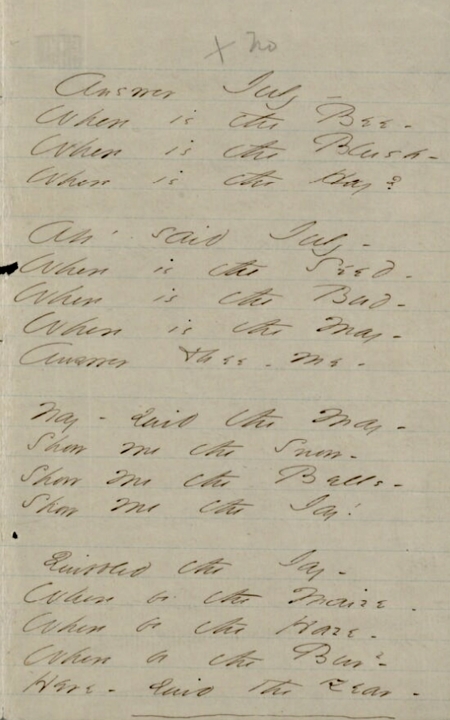 x no
Answer July -
Where is the Bee -
Where is the Blush -
Where is the Hay?
Ah! said July -
Where is the Seed -
Where is the Bud -
Where is the May -
Answer Thee - me -
Nay - said the May -
Show me the Snow -
Show me the Bells -
Show me the Jay!
Quibbled the Jay -
Where be the Maize -
Where be the Haze -
Where be the Bur?
Here - said the Year -